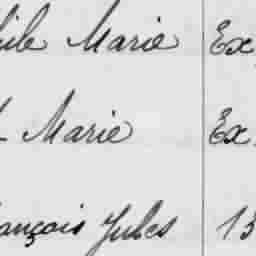 Marie Ex
Marie Ex
ançois Jules 13